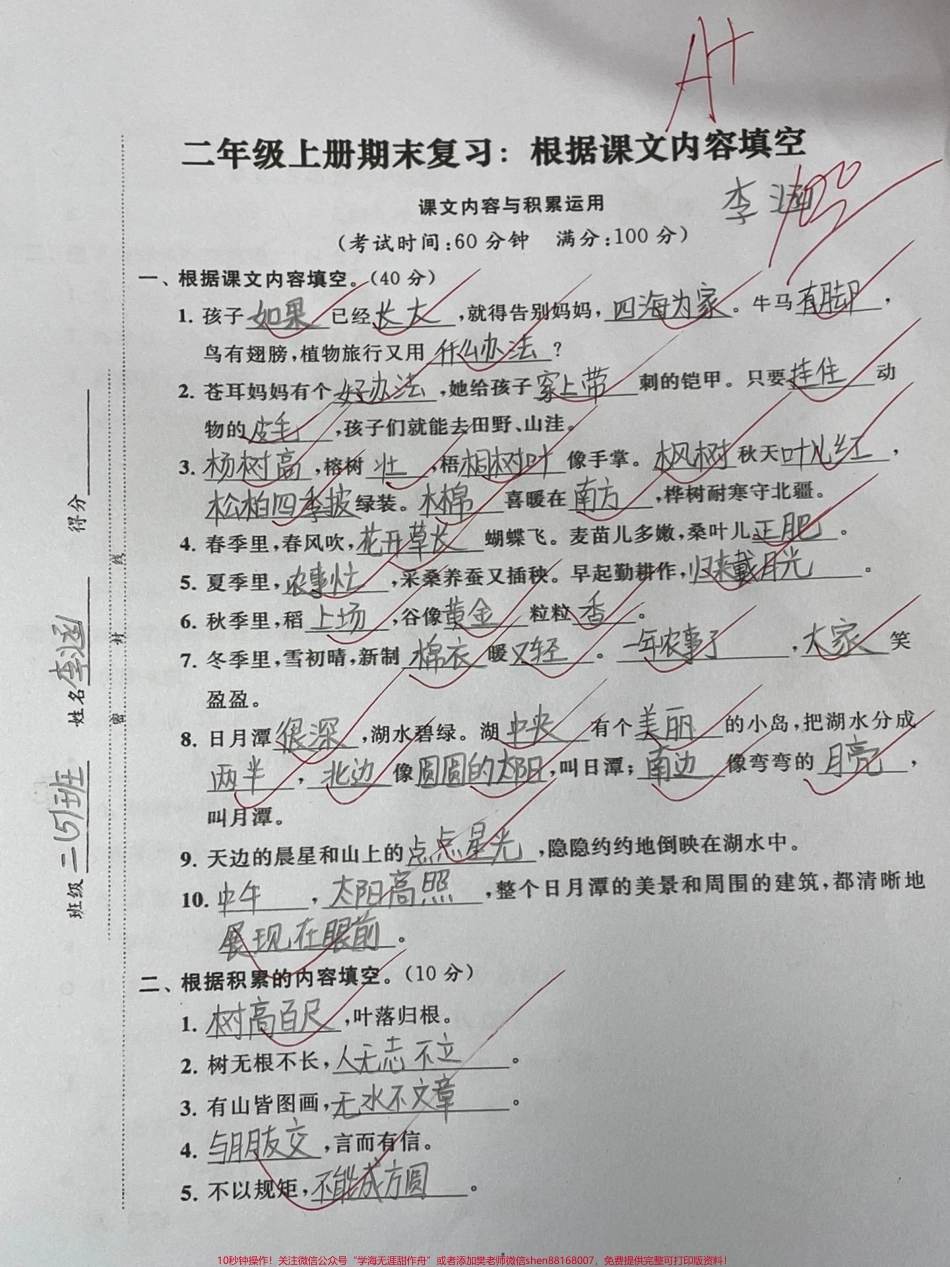 A+
二年级上册期末复习：根据课文内容填空
课文内容与积累运用
李涵
100
（考试时间：60分钟 满分：100分）
一、根据课文内容填空。（40分）
1. 孩子如果已经长大，就得告别妈妈，四海为家。牛马有脚，
鸟有翅膀，植物旅行又用什么办法？
2. 苍耳妈妈有个好办法，她给孩子穿上带刺的铠甲。只要挂住动
物的皮毛，孩子们就能去田野、山洼。
3. 杨树高，榕树壮，梧桐树叶像手掌。枫树秋天叶儿红，
松柏四季披绿装。木棉喜暖在南方，桦树耐寒守北疆。
4. 春季里，春风吹，花开草长蝴蝶飞。麦苗儿多嫩，桑叶儿正肥。
5. 夏季里，农事忙，采桑养蚕又插秧。早起勤耕作，归来戴月光。
6. 秋季里，稻上场，谷像黄金粒粒香。
7. 冬季里，雪初晴，新制棉衣暖又轻。一年农事了，大家笑
盈盈。
8. 日月潭很深，湖水碧绿。湖中央有个美丽的小岛，把湖水分成
两半，北边像圆圆的太阳，叫日潭；南边像弯弯的月亮，
叫月潭。
9. 天边的晨星和山上的点点星光，隐隐约约地倒映在湖水中。
10. 中午，太阳高照，整个日月潭的美景和周围的建筑，都清晰地
展现在眼前。
二、根据积累的内容填空。（10分）
1. 树高百尺，叶落归根。
2. 树无根不长，人无志不立。
3. 有山皆图画，无水不文章。
4. 与朋友交，言而有信。
5. 不以规矩，不能成方圆。
班级 二(5)班 姓名 李涵 得分
密 封 线
10秒钟操作！关注微信公众号“学海无涯甜作舟”或者添加樊老师微信shen88168007，免费提供完整可打印版资料！